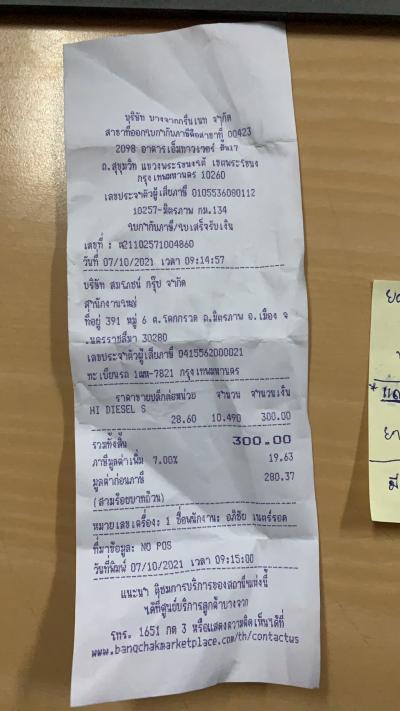 บริษัท บางจากกรีนเนท จำกัด
สาขาที่ออกใบกำกับภาษีคือสาขาที่ 00423
2098 อาคารเอ็มทาวเวอร์ ชั้น17
ถ.สุขุมวิท แขวงพระโขนงใต้ เขตพระโขนง
กรุงเทพมหานคร 10260
เลขประจำตัวผู้เสียภาษี 0105536080112
10257-มิตรภาพ กม.134
ใบกำกับภาษี/ใบเสร็จรับเงิน
เลขที่ : #21102571004860
วันที่ 07/10/2021 เวลา 09:14:57
บริษัท สมโภชน์ กรุ๊ป จำกัด
สำนักงานใหญ่
ที่อยู่ 391 หมู่ 6 ต.โคกกรวด ถ.มิตรภาพ อ.เมือง จ
.นครราชสีมา 30280
เลขประจำตัวผู้เสียภาษี 0415562000021
ทะเบียนรถ 1ฒฬ-7821 กรุงเทพมหานคร
ราคาขายปลีกต่อหน่วย จำนวน จำนวนเงิน
HI DIESEL S
28.60 10.490 300.00
รวมทั้งสิ้น 300.00
ภาษีมูลค่าเพิ่ม 7.00% 19.63
มูลค่าก่อนภาษี 280.37
(สามร้อยบาทถ้วน)
หมายเลขเครื่อง: 1 ชื่อพนักงาน: อภิชัย เนตร์รอด
ที่มาข้อมูล: NO POS
วันที่พิมพ์ 07/10/2021 เวลา 09:15:00
แนะนำ ติชมการบริการของสถานีแห่งนี้
ได้ที่ศูนย์บริการลูกค้าบางจาก
โทร. 1651 กด 3 หรือแสดงความคิดเห็นได้ที่
www.bangchakmarketplace.com/th/contactus